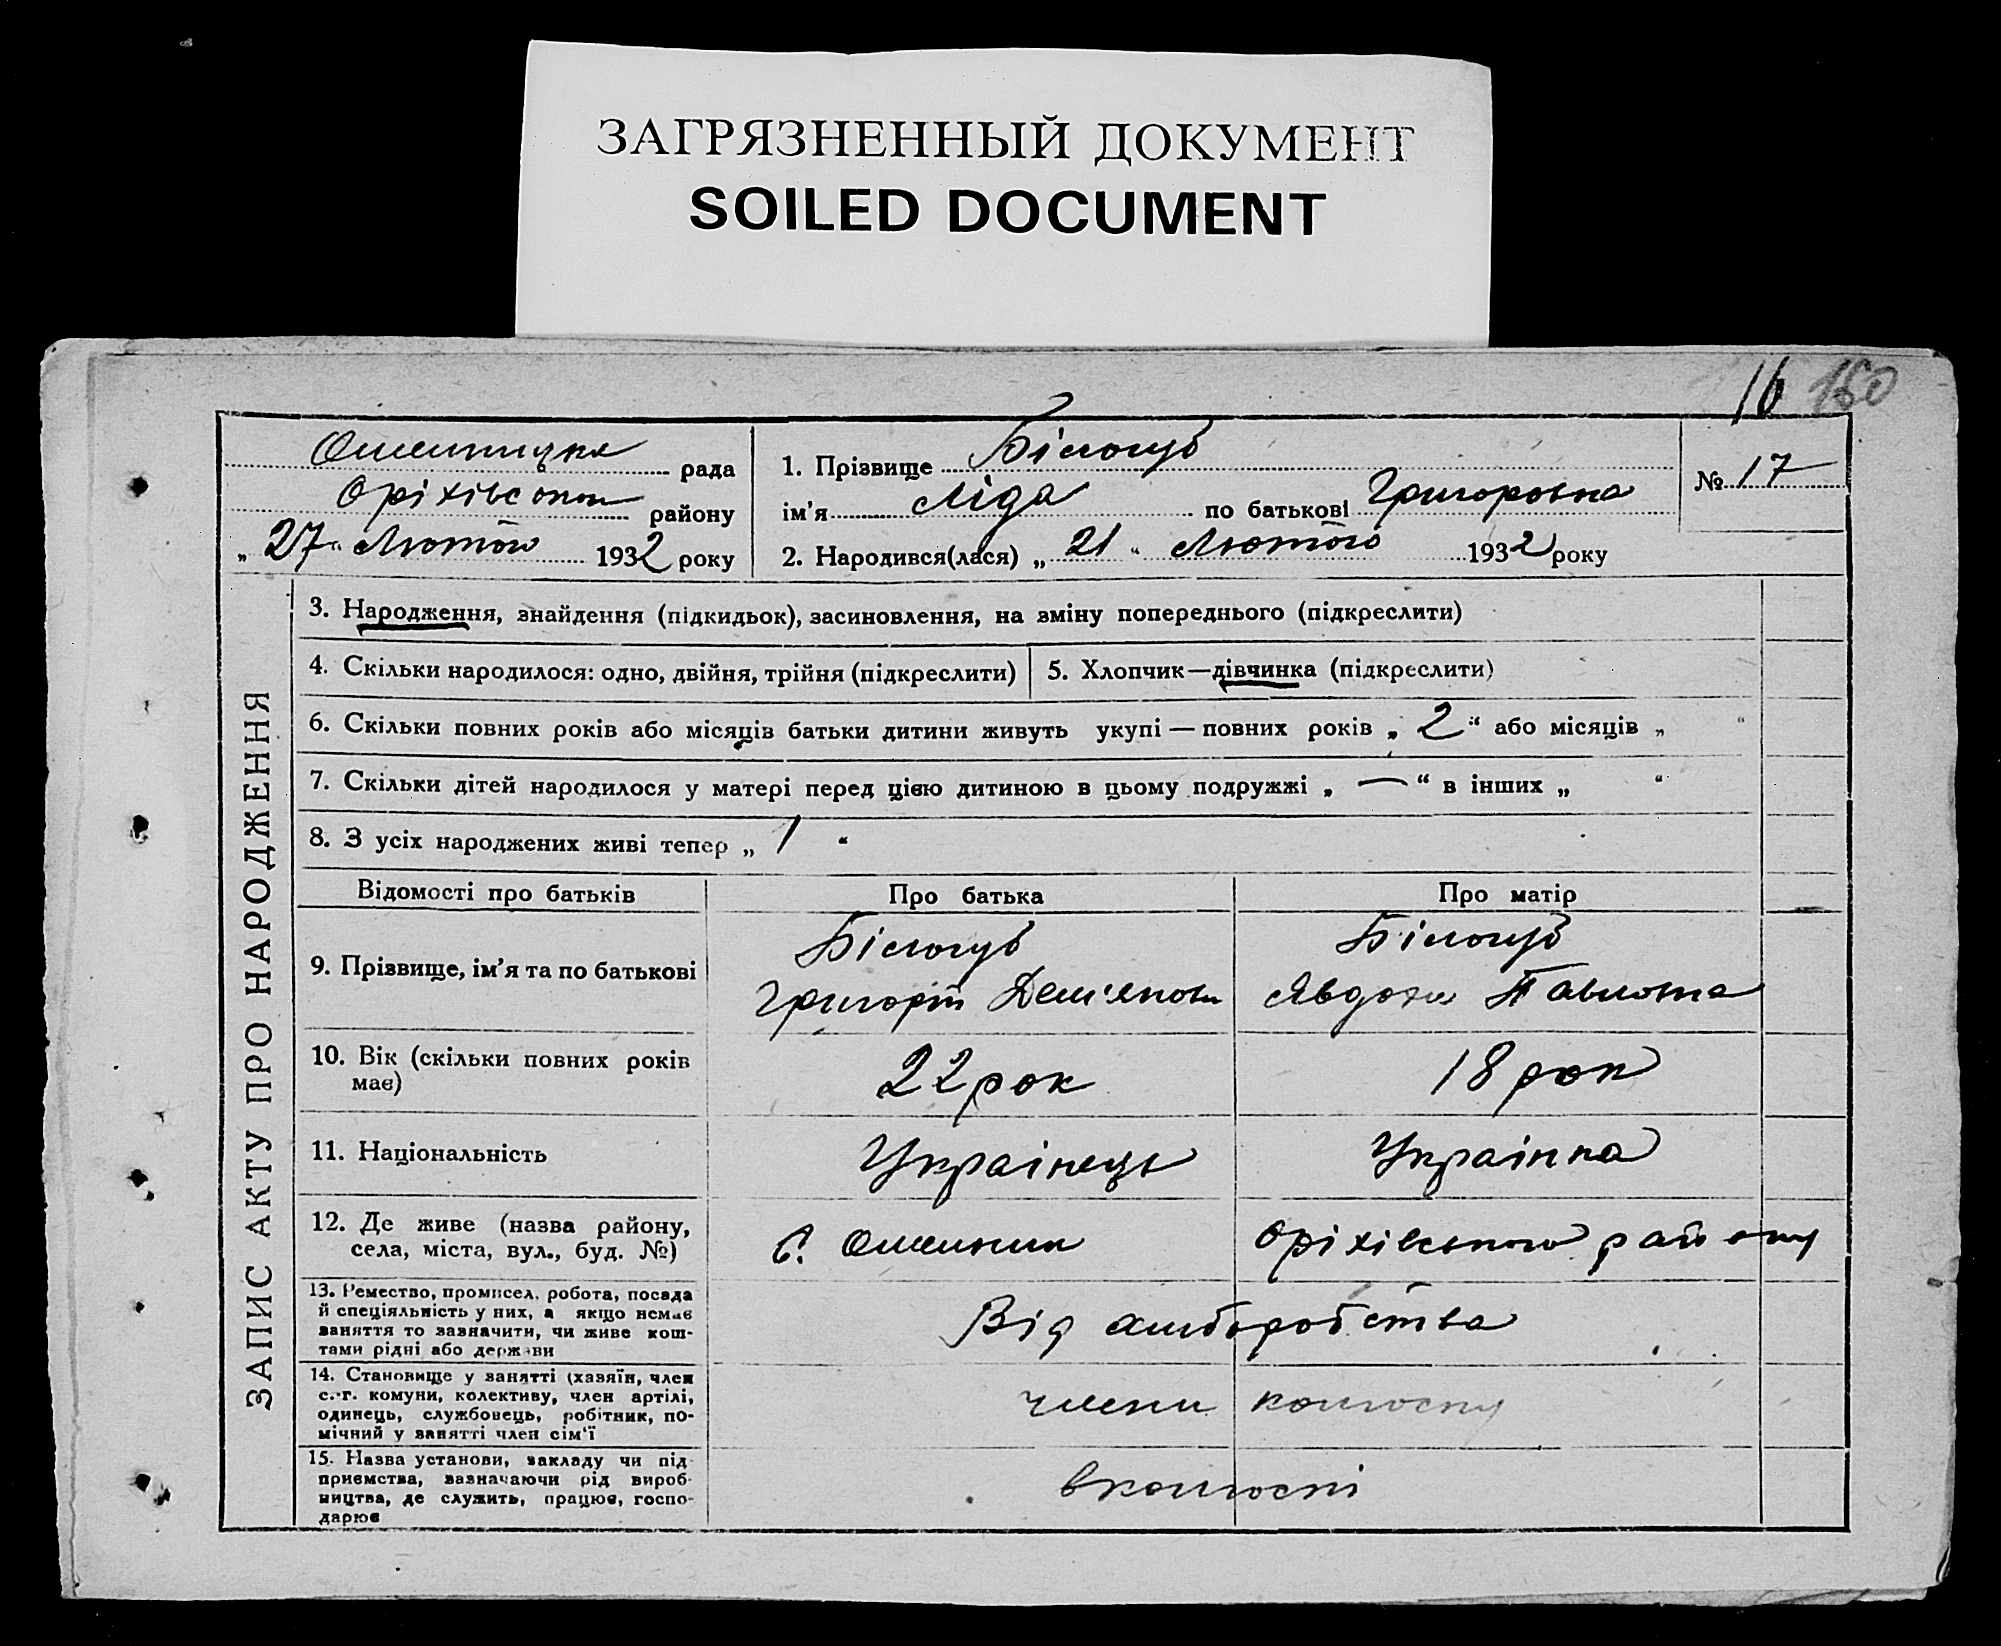 ЗАГРЯЗНЕННЫЙ ДОКУМЕНТ
SOILED DOCUMENT
16 150
рада
Оріхівського району
„27“ Лютого 1932 року
1. Прізвище Білогуб
ім'я Ліда по батькові Григоровна
2. Народився(лася) „21“ Лютого 1932 року
№ 17
ЗАПИС АКТУ ПРО НАРОДЖЕННЯ
3. Народження, знайдення (підкидьок), засиновлення, на зміну попереднього (підкреслити)
4. Скільки народилося: одно, двійня, трійня (підкреслити)
5. Хлопчик—дівчинка (підкреслити)
6. Скільки повних років або місяців батьки дитини живуть укупі — повних років „2“ або місяців „ “
7. Скільки дітей народилося у матері перед цією дитиною в цьому подружжі „—“ в інших „ “
8. З усіх народжених живі тепер „1“
Відомості про батьків
Про батька
Про матір
9. Прізвище, ім'я та по батькові
Білогуб
Григорій Дем'янов
Білогуб
Явдоха Павловна
10. Вік (скільки повних років
має)
22 рок
18 рок
11. Національність
Українець
Українка
12. Де живе (назва району,
села, міста, вул., буд. №)
с.
Оріхівського району
13. Ремество, промисел, робота, посада
й спеціяльність у них, а якщо немає
заняття то зазначити, чи живе кош-
тами рідні або держави
Від хліборобства
14. Становище у занятті (хазяїн, член
с.-г. комуни, колективу, член артілі,
одинець, службовець, робітник, по-
мічний у занятті член сім'ї
члени колгоспу
15. Назва установи, закладу чи під-
приємства, зазначаючи рід вироб-
ництва, де служить, працює, госпо-
дарює
в колгоспі